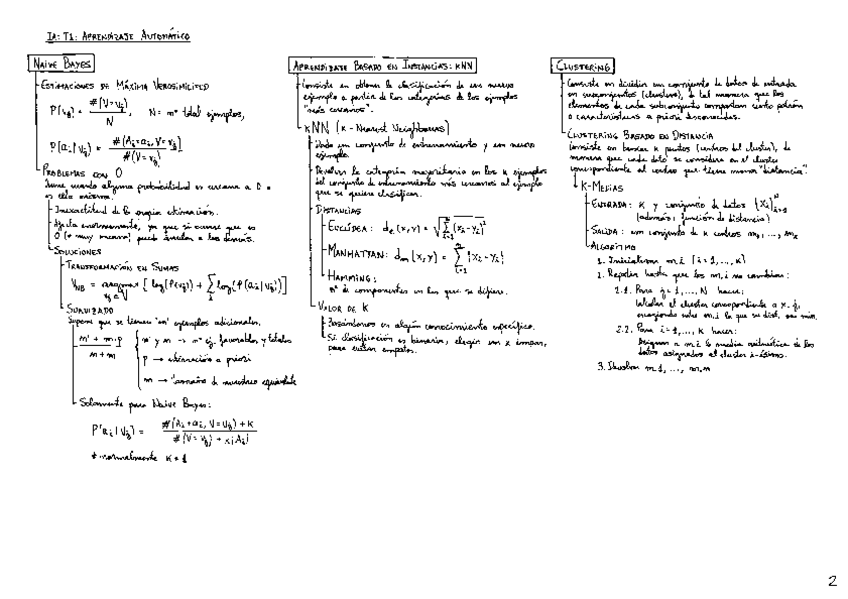 IA: T1: APRENDIZAJE AUTOMÁTICO
NAIVE BAYES
ESTIMACIONES DE MÁXIMA VEROSIMILITUD
P(vj) = #(V=vj) / N, N = nº total ejemplos,
P(ai|vj) = #(Ai=ai, V=vj) / #(V=vj)
PROBLEMAS CON 0
cuando alguna probabilidad es cercana a 0 o
es ella misma.
Inexactitud de la propia estimación.
Afecta enormemente, ya que si ocurre que es
0 (o muy cercano) puede anular a los demás.
SOLUCIONES
TRANSFORMACIÓN EN SUMAS
VNB = argmax vj∈V [log(P(vj)) + Σi log(P(ai|vj))]
SUAVIZADO
Supone que se tienen "m" ejemplos adicionales.
n' + m·p / n + m
n' y n → nº ej. favorables y totales
p → estimación a priori
m → tamaño de muestreo equivalente
Solamente para Naive Bayes:
P'(ai|vj) = #(Ai=ai, V=vj) + k / #(V=vj) + k|Ai|
* normalmente k=1
APRENDIZAJE BASADO EN INSTANCIAS: KNN
Consiste en obtener la clasificación de un nuevo
ejemplo a partir de las categorías de los ejemplos
"más cercanos".
KNN (K-Nearest Neighbours)
Dado un conjunto de entrenamiento y un nuevo
ejemplo.
Devolver la categoría mayoritaria en los k ejemplos
del conjunto de entrenamiento más cercanos al ejemplo
que se quiere clasificar.
DISTANCIAS
EUCLÍDEA: de(x,y) = √Σ(xi-yi)²
MANHATTAN: dm(x,y) = Σ|xi-yi|
HAMMING:
nº de componentes en las que se difiere.
VALOR DE K
Basándonos en algún conocimiento específico.
Si clasificación es binaria, elegir un k impar,
para evitar empates.
CLUSTERING
Consiste en dividir un conjunto de datos de entrada
en subconjuntos (clusters), de tal manera que los
elementos de cada subconjunto compartan cierto patrón
o características a priori desconocidas.
CLUSTERING BASADO EN DISTANCIA
Consiste en buscar k puntos (centros del cluster), de
manera que cada dato se considera en el cluster
correspondiente al centro que tiene menor "distancia".
K-MEDIAS
ENTRADA: K y conjunto de datos {xi} i=1 N
(además: función de distancia)
SALIDA: un conjunto de k centros m1, ..., mk
ALGORITMO
1. Inicializar mi (i=1,...,k)
2. Repetir hasta que los mi no cambien:
2.1. Para j=1,..., N hacer:
Calcular el cluster correspondiente a xj,
escogiendo entre mi la que su dist. sea min.
2.2. Para i=1,..., k hacer:
Asignar a mi la media aritmética de los
datos asignados al cluster i-ésimo.
3. Devolver m1, ..., mn
2